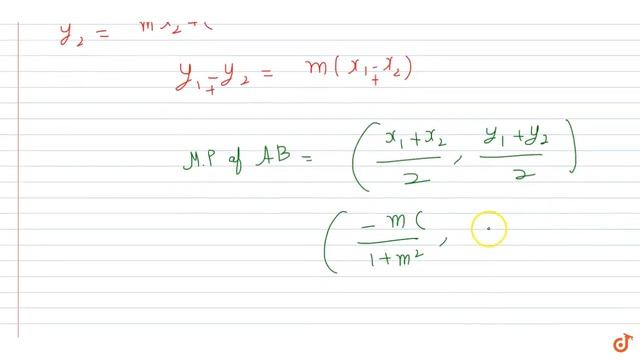 y₂ = mx₂+(
y₁ -+ y₂ = m(x₁ -+ x₂)
M.P of AB = ( (x₁+x₂)/2 , (y₁+y₂)/2 )
( (-m()/(1+m²) , .